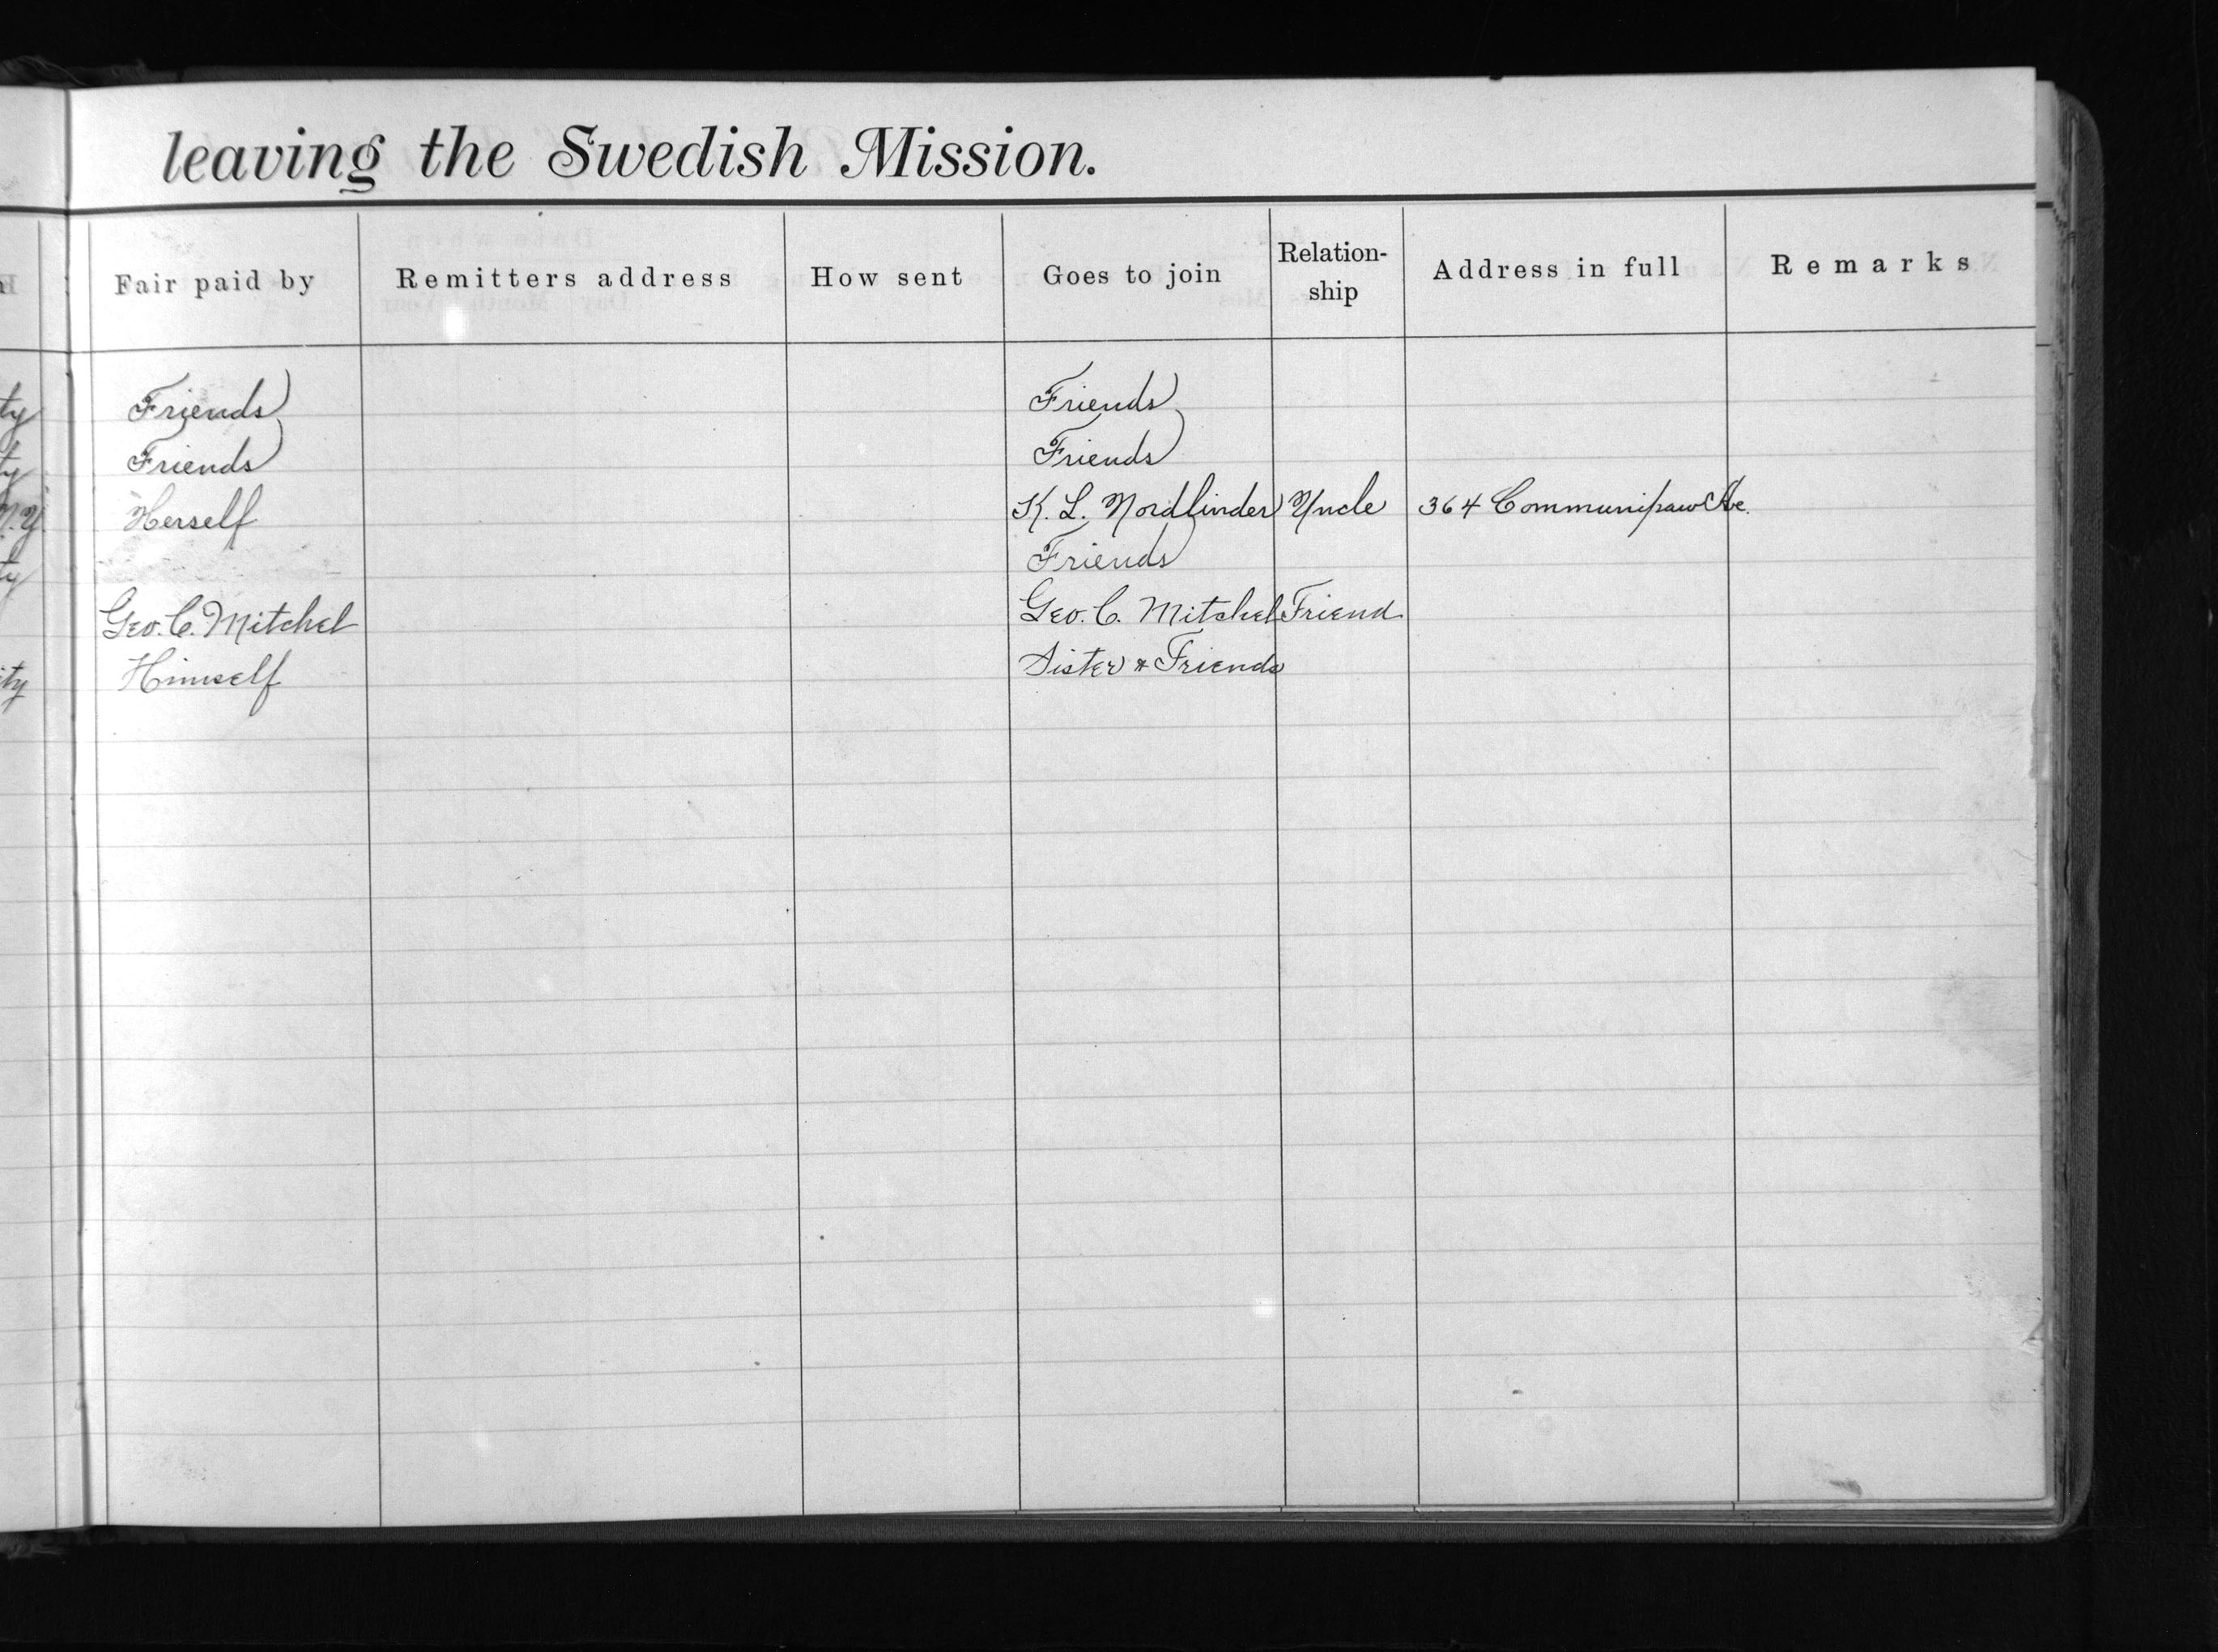 leaving the Swedish Mission.
Fair paid by Remitters address How sent Goes to join Relation-ship Address in full Remarks
ty Friends Friends
ty Friends Friends
N.Y. Herself K. L. Nordlinder Uncle 364 Communipaw Ave.
ty Friends
Geo. C. Mitchel Geo. C. Mitchel Friend
ity Himself Sister & Friends